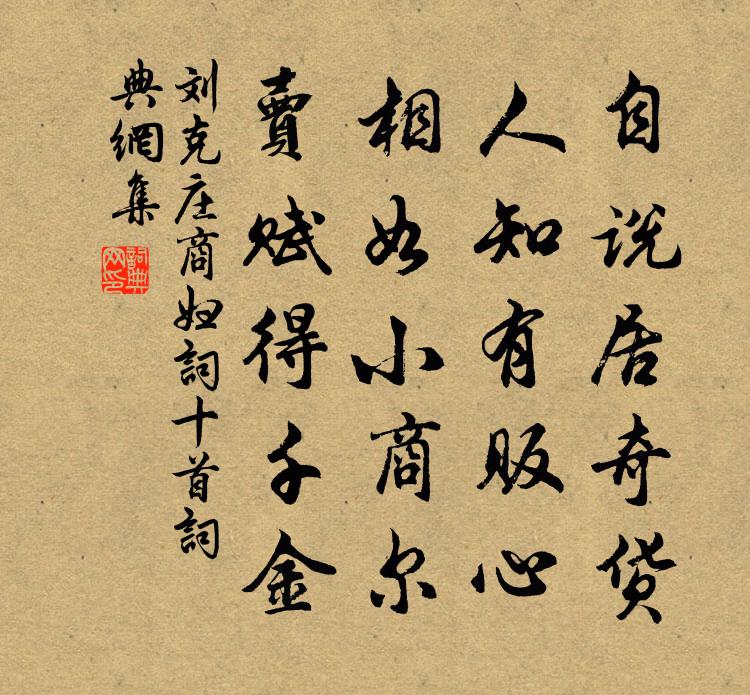 自说居奇货
人知有贩心
相如小商尔
賣赋得千金
刘克庄商妇詞十首詞
典網集
詞典网印